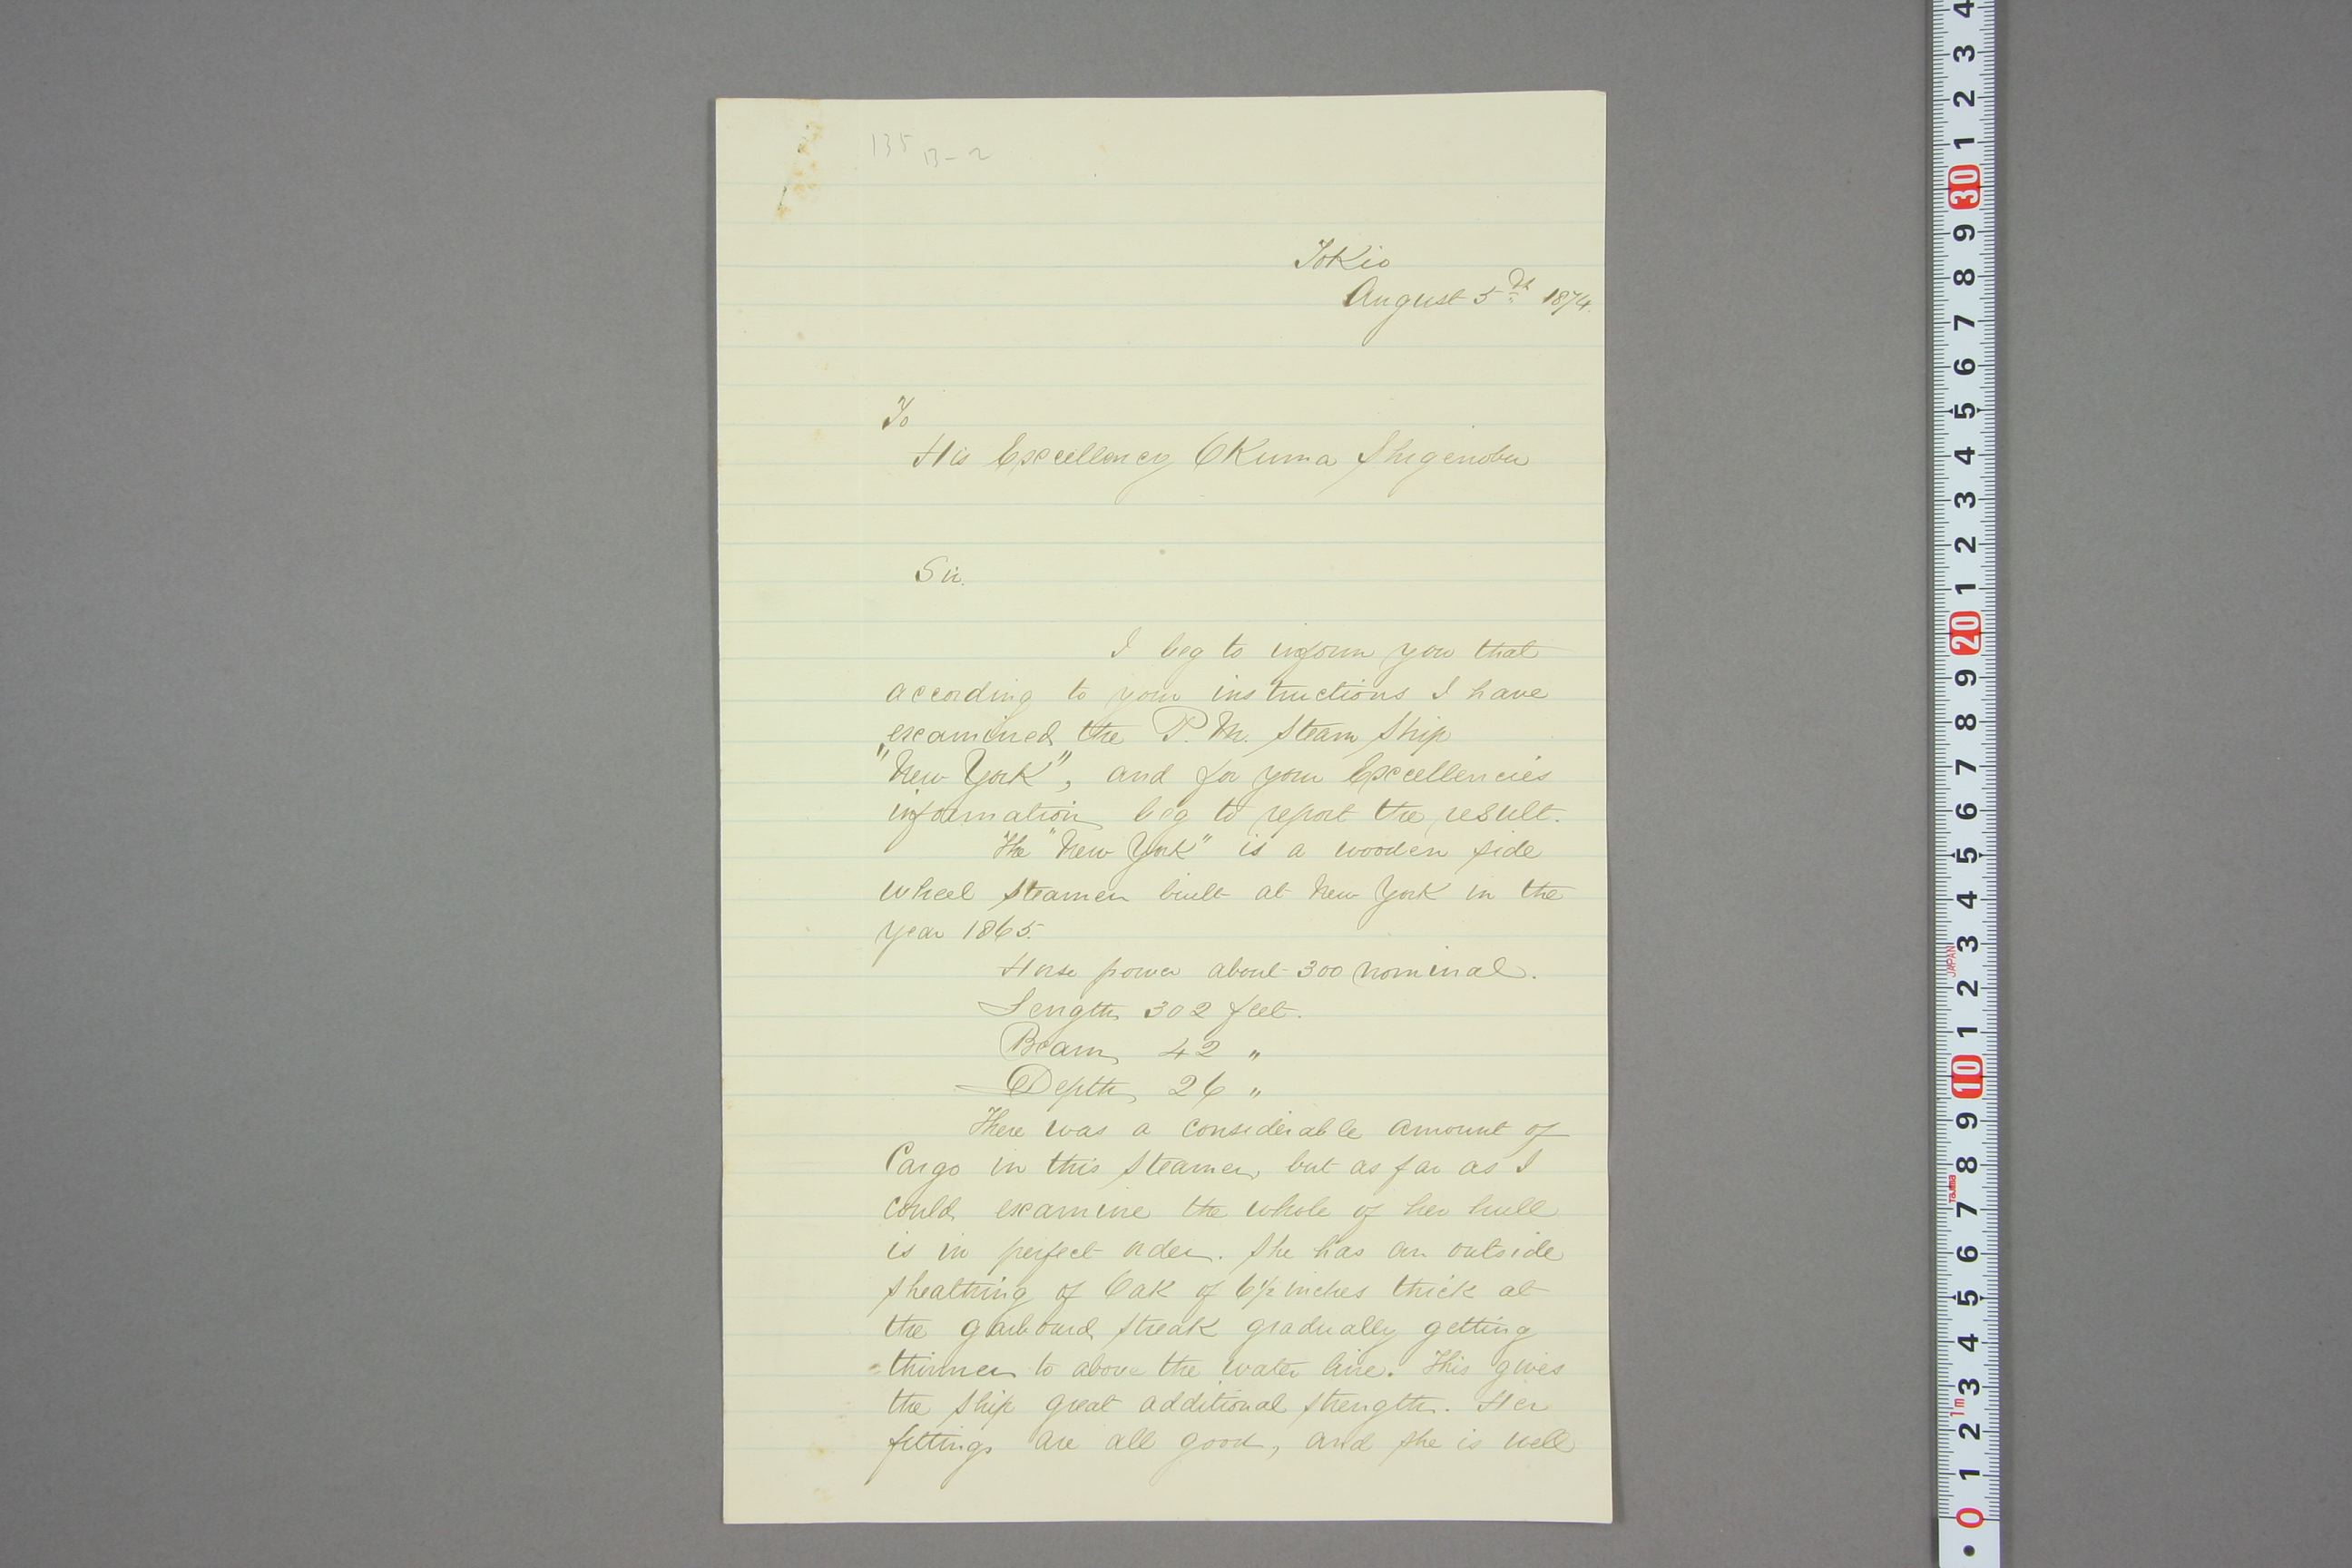 135 B-2
Tokio
August 5th 1874.
To
His Excellency Okuma Shigenobu
Sir.
I beg to inform you that
according to your instructions I have
examined the P. M. Steam Ship
"New York", and for your Excellencies
information beg to report the result.
The "New York" is a wooden side
wheel steamer built at New York in the
year 1865.
Horse power about 300 nominal.
Length 302 feet.
Beam 42 "
Depth 26 "
There was a considerable amount of
Cargo in this steamer, but as far as I
could examine the whole of her hull
is in perfect order. She has an outside
sheathing of Oak of 6½ inches thick at
the garboard streak gradually getting
thinner to above the water line. This gives
the ship great additional strength. Her
fittings are all good, and she is well
4
3
2
1
30
9
8
7
6
5
4
3
2
1
20
9
8
7
6
5
4
3
JAPAN
2
1
10
9
8
Tajima
7
6
5
4
3
1m
2
1
0